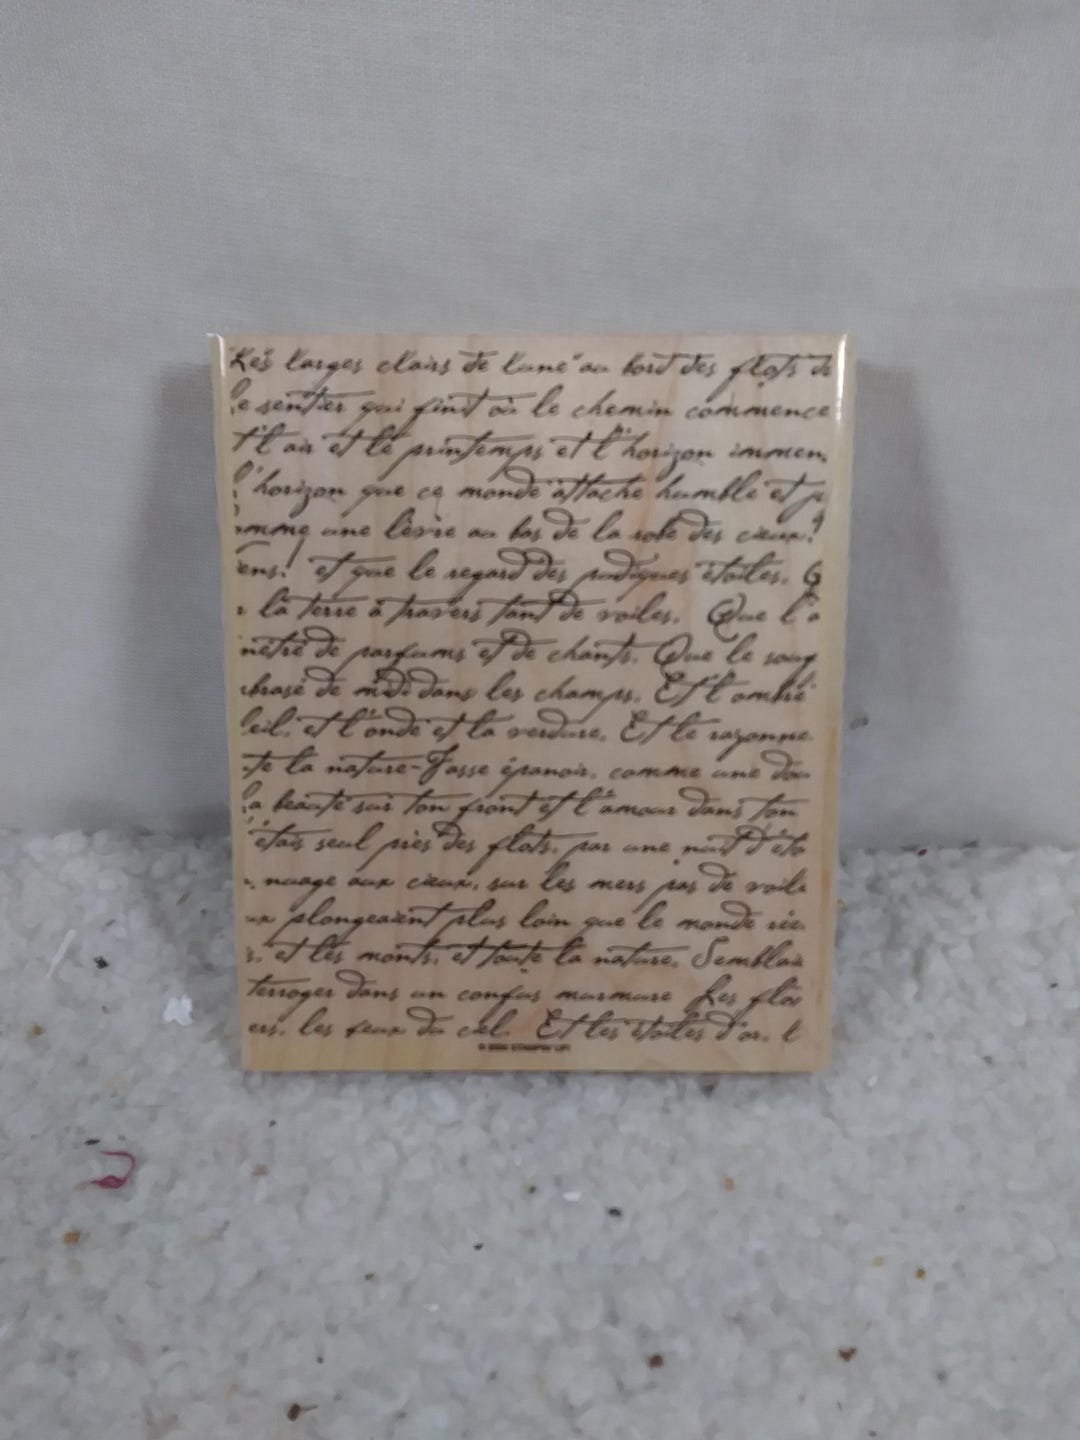 Les larges clairs de lune au bord des flots de
le sentier qui finit où le chemin commence
t l'air et le printemps et l'horizon immen
l'horizon que ce monde attache humble et j
omme une lèvre au bas de la robe des cieux!
iens! et que le regard des pudiques étoiles. Q
la terre à travers tant de voiles. Que l'a
nétré de parfums et de chants. Que le souf
mbrasé de midi dans les champs. Et l'ombre
leil, et l'onde et la verdure. Et le rayonne
te la nature-Fasse épanoir, comme une dou
la beauté sur ton front et l'amour dans ton
'étais seul près des flots, par une nuit d'éto
nuage aux cieux, sur les mers pas de voile
ux plongeaient plus loin que le monde rée
s, et les monts, et toute la nature. Semblai
terroger dans un confus murmure Les flo
ers, les feux du ciel. Et les étoiles d'or, l
© STAMPIN' UP!